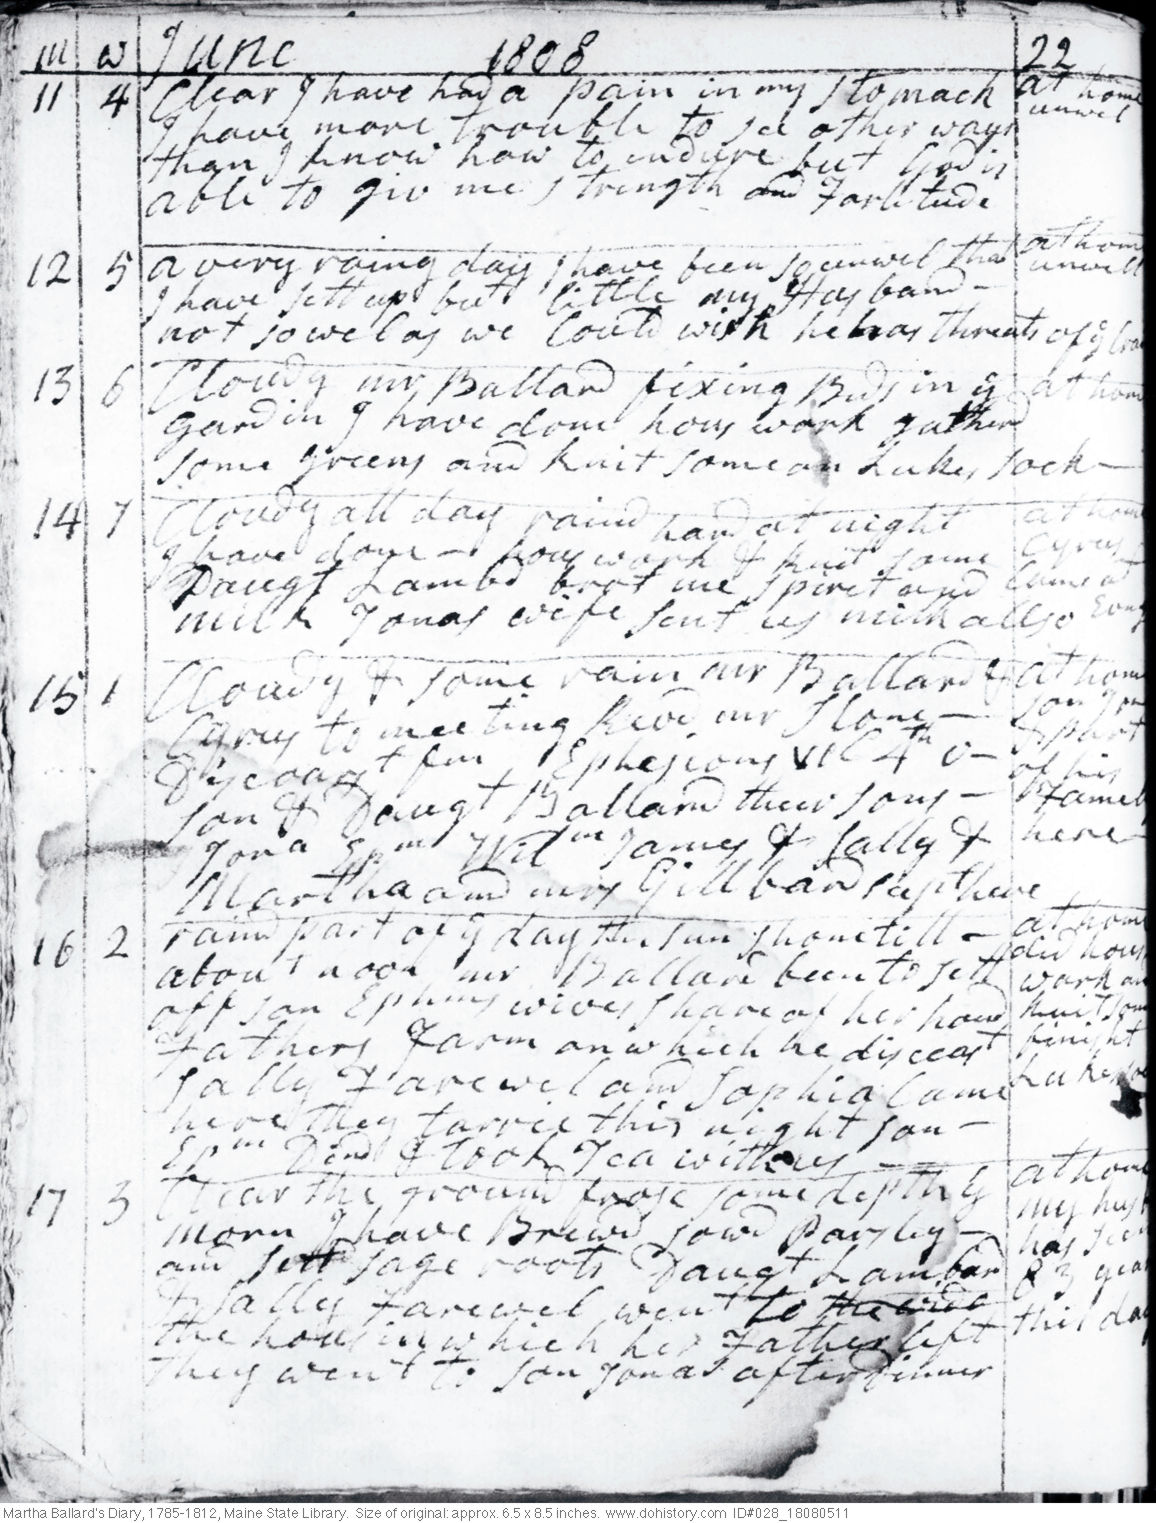 m w June 1808 22
11 4 Clear I have had a pain in my stomach at home
I have more trouble to see other ways unwel
than I know how to endure but God is
able to giv me strength and Fortetude
12 5 a very rainy day I have been so unwel that at home
I have sett up but little my Husband - unwell
not so wel as we Could wish he has threats of ye
13 6 Cloudy mr Ballard fixing Beds in ye at home
Gardin I have done hous work gatherd
some greens and knit some on Lukes sock -
14 7 Cloudy all day raind hard at night at home
I have done - hous work & knit some Cyrus
Daugt Lambd brot me spirit and Came at
milk Jonas wife sent us milk allso Evng
15 1 Cloudy & some rain mr Ballard & at home
Cyrus to meeting Revd mr Stone - son Jon
discoarst from Ephesions VI C 4th v - & part
son & Daugt Ballard their sons - of his
Jona Epm Wilm James & Sally & Famely
Martha and mrs Gillbard sup there here -
16 2 raind part of ye day the sun shone till - at home
about noon mr Ballard been to sett did hous
off son Ephms wives share of her hond work and
Fathers Farm on which he diseast knit some
Sally Farewel and Sophia Came finisht
here they tarrie this night son - Lukes
Epm Dind & took Tea with us -
17 3 Clear the ground froze some depth ys at home
morn I have Brewd sowd Parsley - my husb
and sett sage roots Daugt Lambard has seen
& Sally Farewel went to the 83 years
the hous in which her Father left this day
they went to son Jonas after Dinner
Martha Ballard's Diary, 1785-1812, Maine State Library. Size of original: approx. 6.5 x 8.5 inches. www.dohistory.com ID#028_18080511